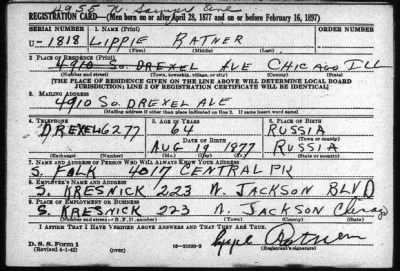 4955 N.
REGISTRATION CARD—(Men born on or after April 28, 1877 and on or before February 16, 1897)
SERIAL NUMBER 1. NAME (Print) ORDER NUMBER
U-1818 LIPPIE RATNER
(First) (Middle) (Last)
2. PLACE OF RESIDENCE (Print)
4910 So. DREXEL AVE CHICAGO ILL
(Number and street) (Town, township, village, or city) (County) (State)
[THE PLACE OF RESIDENCE GIVEN ON THE LINE ABOVE WILL DETERMINE LOCAL BOARD
JURISDICTION; LINE 2 OF REGISTRATION CERTIFICATE WILL BE IDENTICAL]
3. MAILING ADDRESS
4910 So. DREXEL AVE
(Mailing address if other than place indicated on line 2. If same insert word same)
4. TELEPHONE 5. AGE IN YEARS 6. PLACE OF BIRTH
DREXEL 6277 64 RUSSIA
DATE OF BIRTH (Town or county)
AUG 19 1877 RUSSIA
(Exchange) (Number) (Mo.) (Day) (Yr.) (State or country)
7. NAME AND ADDRESS OF PERSON WHO WILL ALWAYS KNOW YOUR ADDRESS
S. FOLK 4017 CENTRAL PK
8. EMPLOYER'S NAME AND ADDRESS
S. KRESNICK 223 W. JACKSON BLVD
9. PLACE OF EMPLOYMENT OR BUSINESS
S. KRESNICK 223 W. JACKSON Chicago
(Number and street or R. F. D. number) (Town) (County) (State)
I AFFIRM THAT I HAVE VERIFIED ABOVE ANSWERS AND THAT THEY ARE TRUE.
D. S. S. Form 1
(Revised 4-1-42) (over) (Registrant's signature)